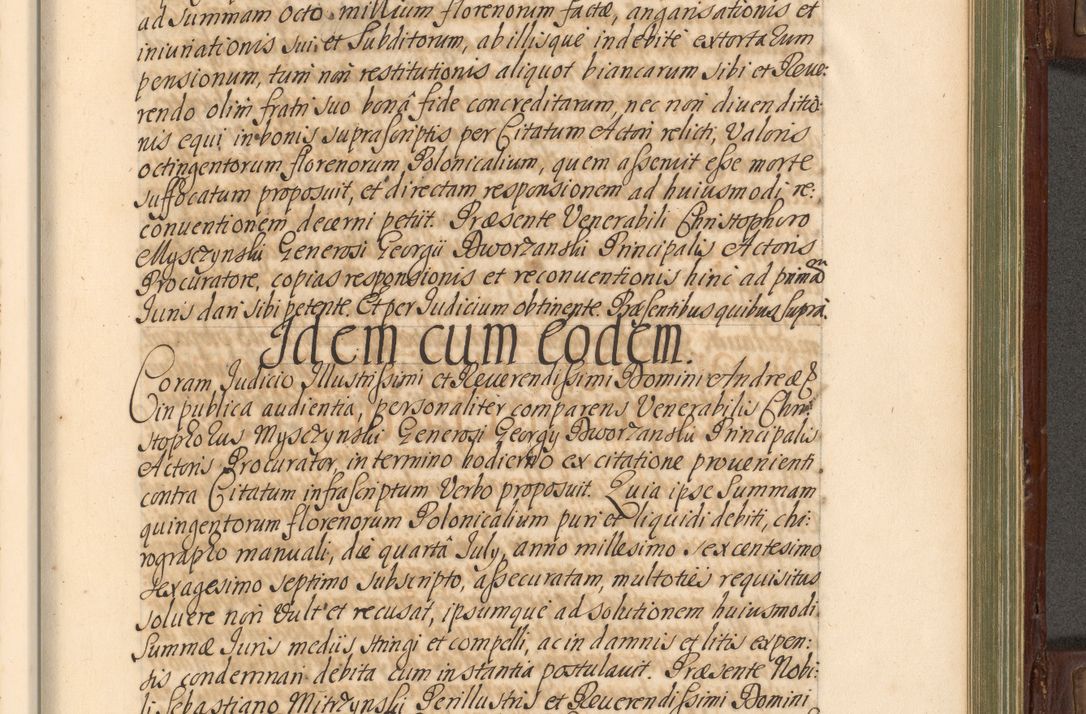 ad Summam Octo millium florenorum factæ, angarisationis et
iniuriationis sui et Subditorum, ab illisque indebite extortarum
pensionum, tum non restitutionis aliquot biancarum sibi et Reue:
rendo olim fratri suo bonâ fide concreditarum, nec non diuenditio:
nis equi in bonis suprascriptis per Citatum Actori relicti, Valoris
octingentorum florenorum Polonicalium, quem asseruit esse morte
suffocatum proposuit, et directam responsionem ad huiusmodi re:
conuentionem decerni petiit. Præsente Venerabili Christophoro
Mysczynski Generosi Georgii Dworzanski Principalis Actoris
Procuratore, copias responsionis et reconuentionis hinc ad primam
Juris dari sibi petente. Et per Judicium obtinente. Præsentibus quibus supra.
Idem cum eodem.
Coram Judicio Illustrissimi et Reuerendissimi Domini Andreæ &
in publica audientia, personaliter comparens Venerabilis Chri:
stophorus Mysczynski Generosi Georgy Dworzanski Principalis
Actoris Procurator, in termino hodierno ex citatione prouenienti
contra Citatum infrascriptum Verbo proposuit. Quia ipse Summam
quingentorum florenorum Polonicalium puri et liquidi debiti, chi:
rographo manuali, die quarta July, anno millesimo sexcentesimo
sexagesimo septimo subscripto, assecuratam, multoties requisitus
soluere non vult et recusat, ipsumque ad solutionem huiusmodi
Summæ Juris mediis, stringi et compelli, ac in damnis et litis expen:
sis condemnari debita cum instantia postulauit. Præsente Nobi:
li Sebastiano Mitrzynski Perillustris et Reuerendissimi Domini